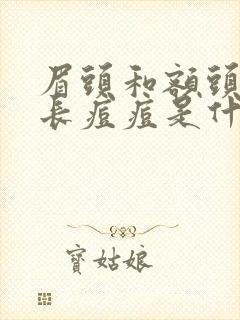 眉頭和額頭
長痘痘是什
寶姑娘